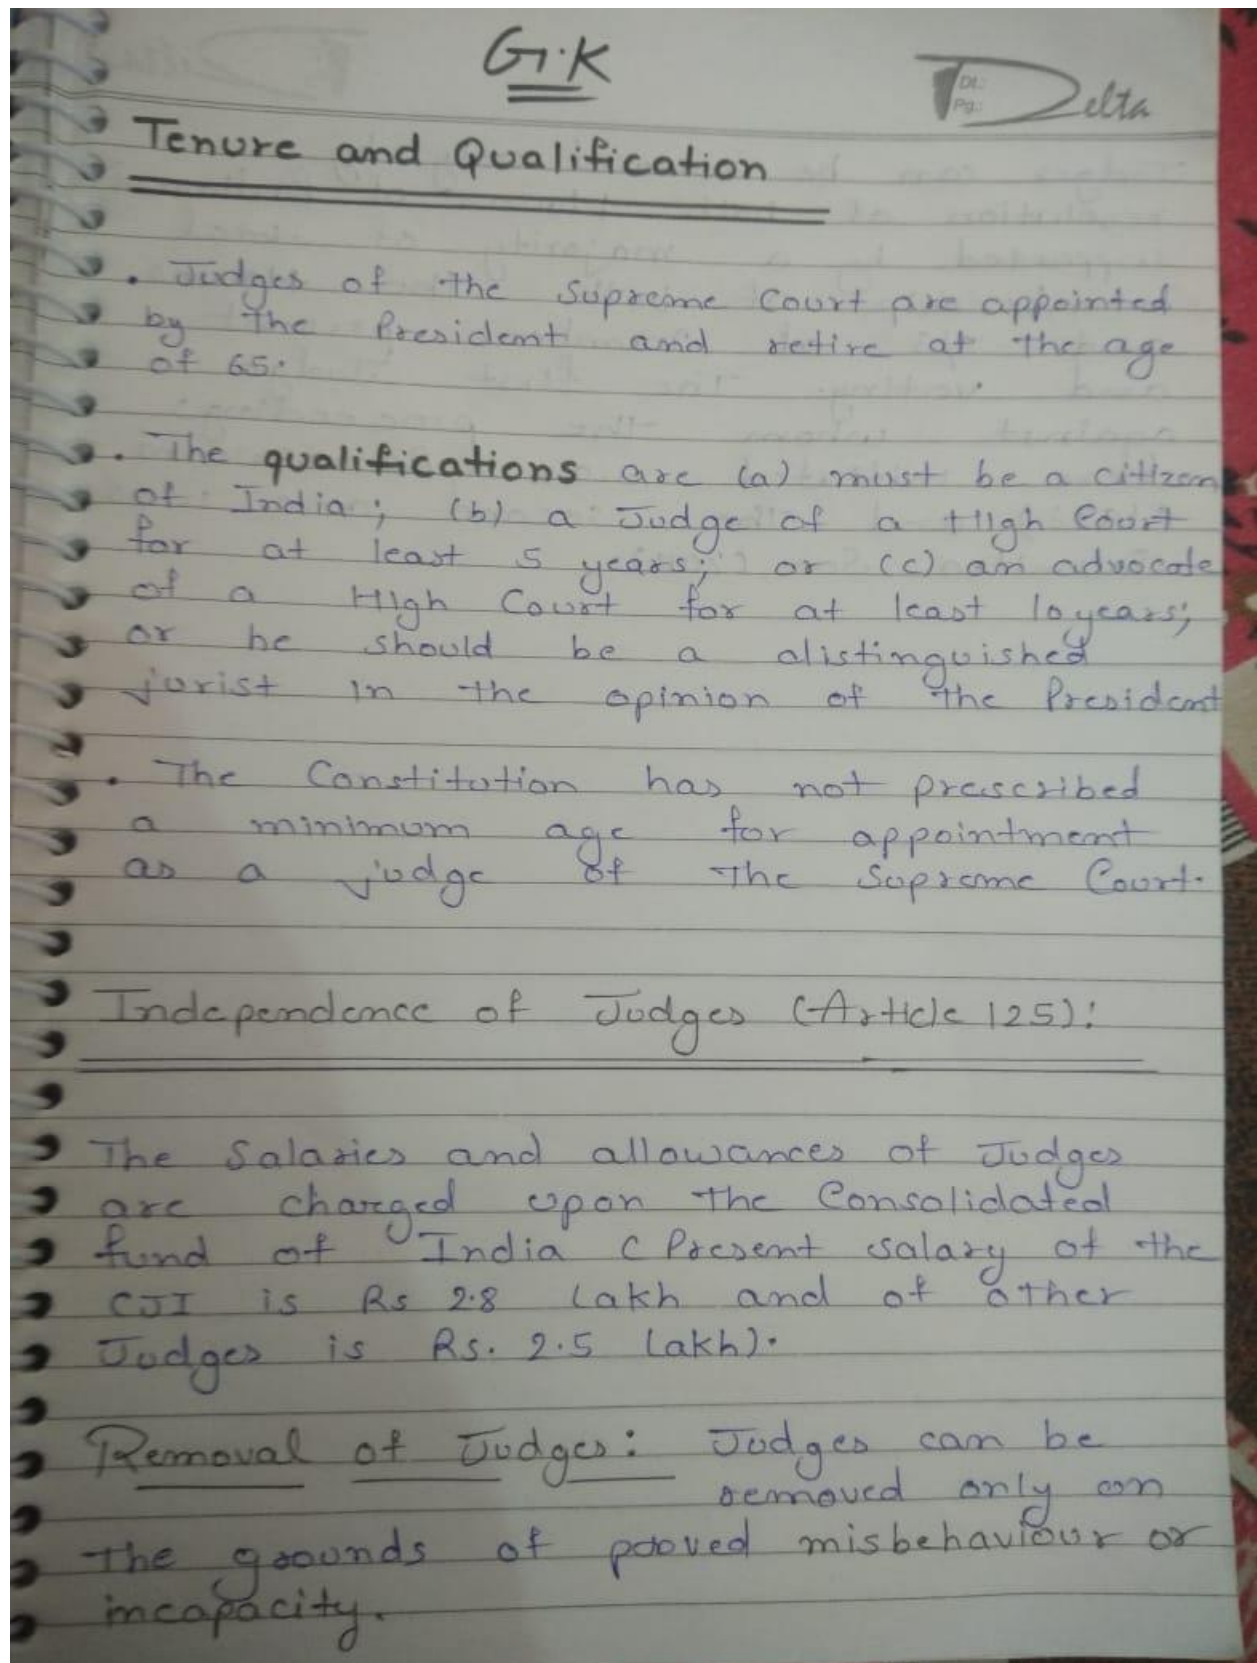 G.K
Dt.:
Pg.:
Delta
Tenure and Qualification
. Judges of the Supreme Court are appointed
by the President and retire at the age
of 65.
. The qualifications are (a) must be a citizen
of India; (b) a Judge of a High Court
for at least 5 years; or (c) an advocate
of a High Court for at least 10 years;
or he should be a distinguished
jurist in the opinion of the President
. The Constitution has not prescribed
a minimum age for appointment
as a judge of the Supreme Court.
Independence of Judges (Article 125):
The Salaries and allowances of Judges
are charged upon the Consolidated
fund of India (Present salary of the
CJI is Rs 2.8 Lakh and of other
Judges is Rs. 2.5 Lakh).
Removal of Judges: Judges can be
removed only on
the grounds of proved misbehaviour or
incapacity.